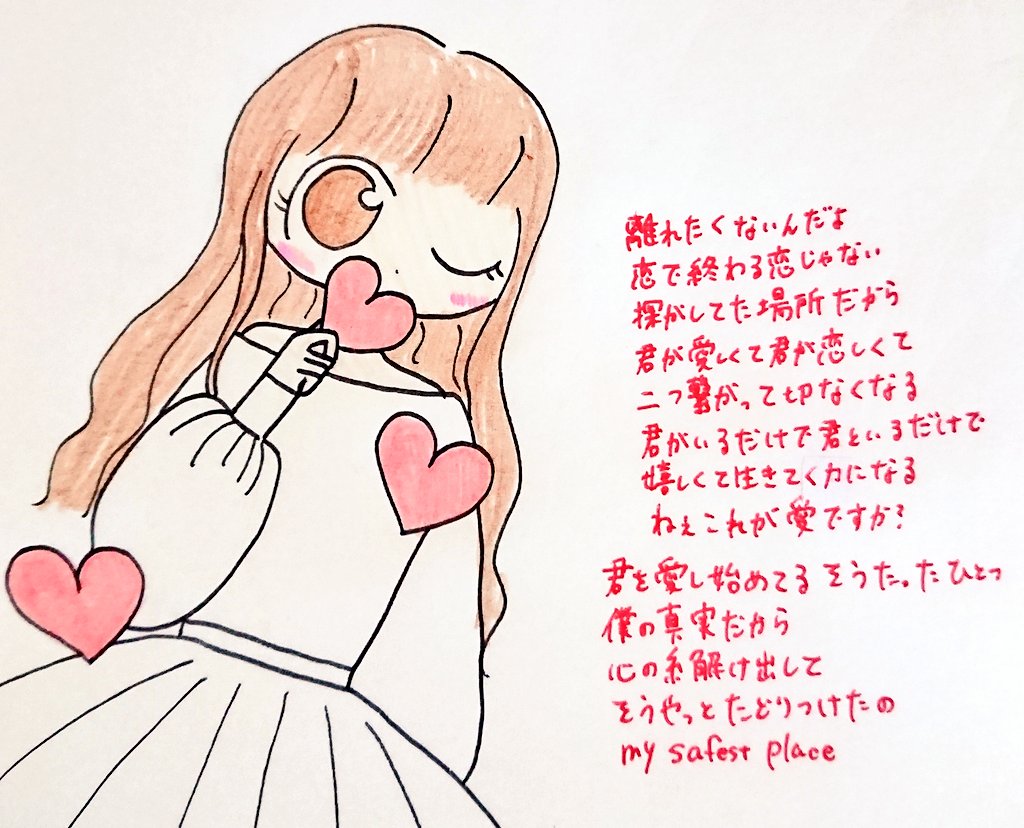 離れたくないんだよ
恋で終わる恋じゃない
探がしてた場所だから
君が愛しくて君が恋しくて
二つ繋がって切なくなる
君がいるだけで君といるだけで
嬉しくて生きてく力になる
ねぇこれが愛ですか?
君を愛し始めてる そうた。たひとつ
僕の真実だから
心の糸解け出して
そうやっとたどりつけたの
my safest place